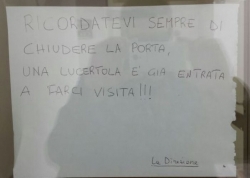 RICORDATEVI SEMPRE DI
CHIUDERE LA PORTA,
UNA LUCERTOLA E' GIA ENTRATA
A FARCI VISITA!!!
La Direzione